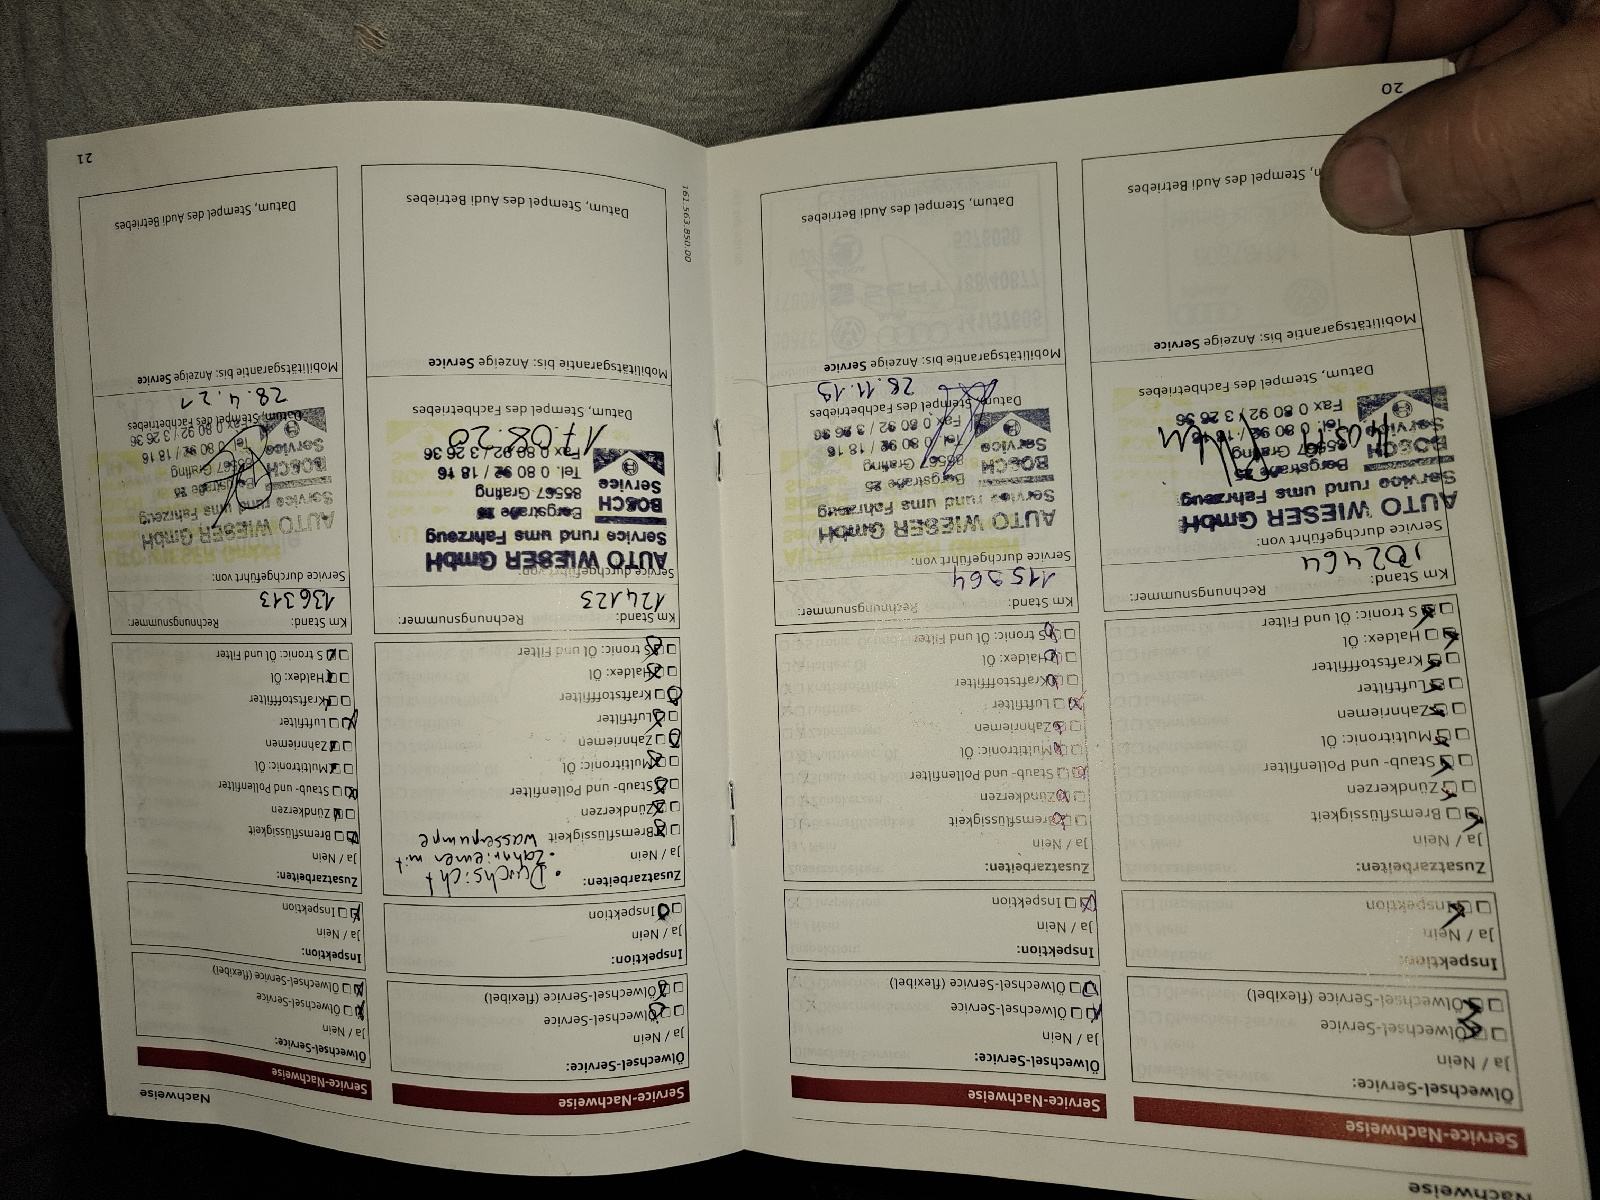 Nachweise
Service-Nachweise
Ölwechsel-Service:
Ja / Nein
Ölwechsel-Service
Ölwechsel-Service (flexibel)
Inspektion:
Ja / Nein
Inspektion
Zusatzarbeiten:
Ja / Nein
Bremsflüssigkeit
Zündkerzen
Staub- und Pollenfilter
Multitronic: Öl
Zahnriemen
Luftfilter
Kraftstofffilter
Haldex: Öl
S tronic: Öl und Filter
Km Stand: Rechnungsnummer:
102464
Service durchgeführt von:
AUTO WIESER GmbH
Service rund ums Fahrzeug
BOSCH
Service
Bergstraße 25
85567 Grafing
Tel. 0 80 92 / 18 16
Fax 0 80 92 / 3 26 36
Datum, Stempel des Fachbetriebes
Mobilitätsgarantie bis: Anzeige Service
20
Service-Nachweise
Ölwechsel-Service:
Ja / Nein
Ölwechsel-Service
Ölwechsel-Service (flexibel)
Inspektion:
Ja / Nein
Inspektion
Zusatzarbeiten:
Ja / Nein
Bremsflüssigkeit
Zündkerzen
Staub- und Pollenfilter
Multitronic: Öl
Zahnriemen
Luftfilter
Kraftstofffilter
Haldex: Öl
S tronic: Öl und Filter
Km Stand: Rechnungsnummer:
115964
Service durchgeführt von:
AUTO WIESER GmbH
Service rund ums Fahrzeug
BOSCH
Service
Bergstraße 25
85567 Grafing
Tel. 0 80 92 / 18 16
Fax 0 80 92 / 3 26 36
Datum, Stempel des Fachbetriebes
28.11.19
Mobilitätsgarantie bis: Anzeige Service
Datum, Stempel des Audi Betriebes
Service-Nachweise
Ölwechsel-Service:
Ja / Nein
Ölwechsel-Service
Ölwechsel-Service (flexibel)
Inspektion:
Ja / Nein
Inspektion
Zusatzarbeiten:
• Durchsicht
Ja / Nein
• Zahnriemen mit
Wasserpumpe
Bremsflüssigkeit
Zündkerzen
Staub- und Pollenfilter
Multitronic: Öl
Zahnriemen
Luftfilter
Kraftstofffilter
Haldex: Öl
S tronic: Öl und Filter
Km Stand: Rechnungsnummer:
124123
Service durchgeführt von:
AUTO WIESER GmbH
Service rund ums Fahrzeug
BOSCH
Service
Bergstraße 25
85567 Grafing
Tel. 0 80 92 / 18 16
Fax 0 80 92 / 3 26 36
17.08.20
Datum, Stempel des Fachbetriebes
Mobilitätsgarantie bis: Anzeige Service
Datum, Stempel des Audi Betriebes
161.563.850.00
Nachweise
Service-Nachweise
Ölwechsel-Service:
Ja / Nein
Ölwechsel-Service
Ölwechsel-Service (flexibel)
Inspektion:
Ja / Nein
Inspektion
Zusatzarbeiten:
Ja / Nein
Bremsflüssigkeit
Zündkerzen
Staub- und Pollenfilter
Multitronic: Öl
Zahnriemen
Luftfilter
Kraftstofffilter
Haldex: Öl
S tronic: Öl und Filter
Km Stand: Rechnungsnummer:
136313
Service durchgeführt von:
AUTO WIESER GmbH
Service rund ums Fahrzeug
BOSCH
Service
Bergstraße 25
85567 Grafing
Tel. 0 80 92 / 18 16
Fax 0 80 92 / 3 26 36
Datum, Stempel des Fachbetriebes
28.4.21
Mobilitätsgarantie bis: Anzeige Service
Datum, Stempel des Audi Betriebes
21